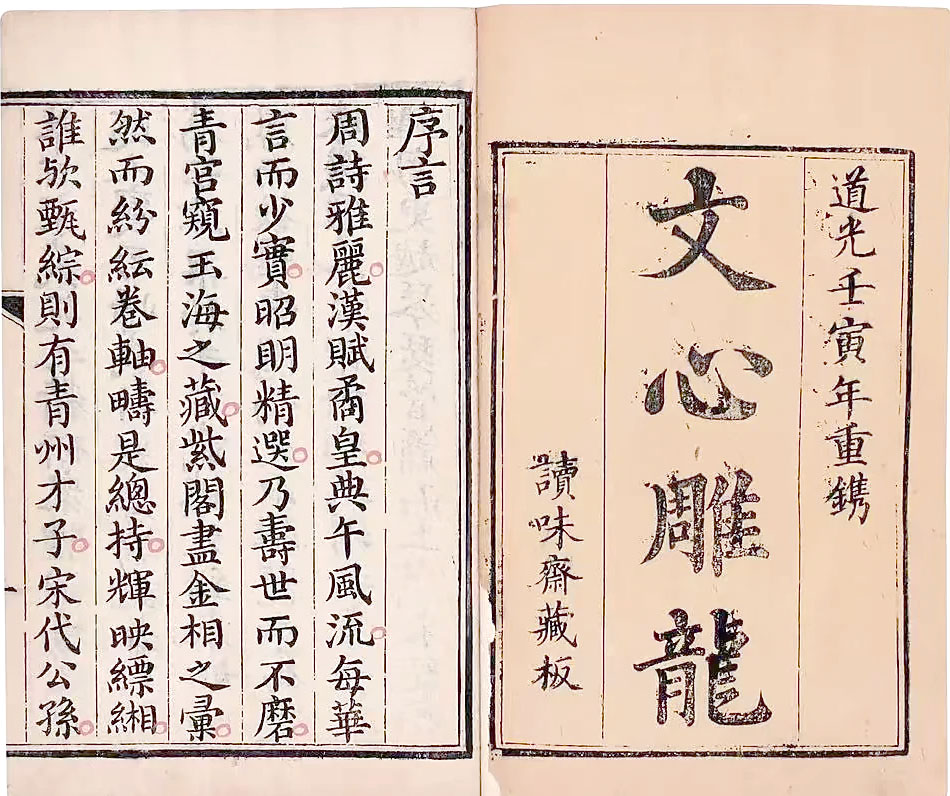 道光壬寅年重鐫
文心雕龍
讀味齋藏板
序言
周詩雅麗漢賦矞皇典午風流每華
言而少實昭明精選乃壽世而不磨
青宮窺玉海之藏紫閣盡金相之彙
然而紛紜卷軸疇是總持輝映縹緗
誰歟甄綜則有青州才子宋代公孫